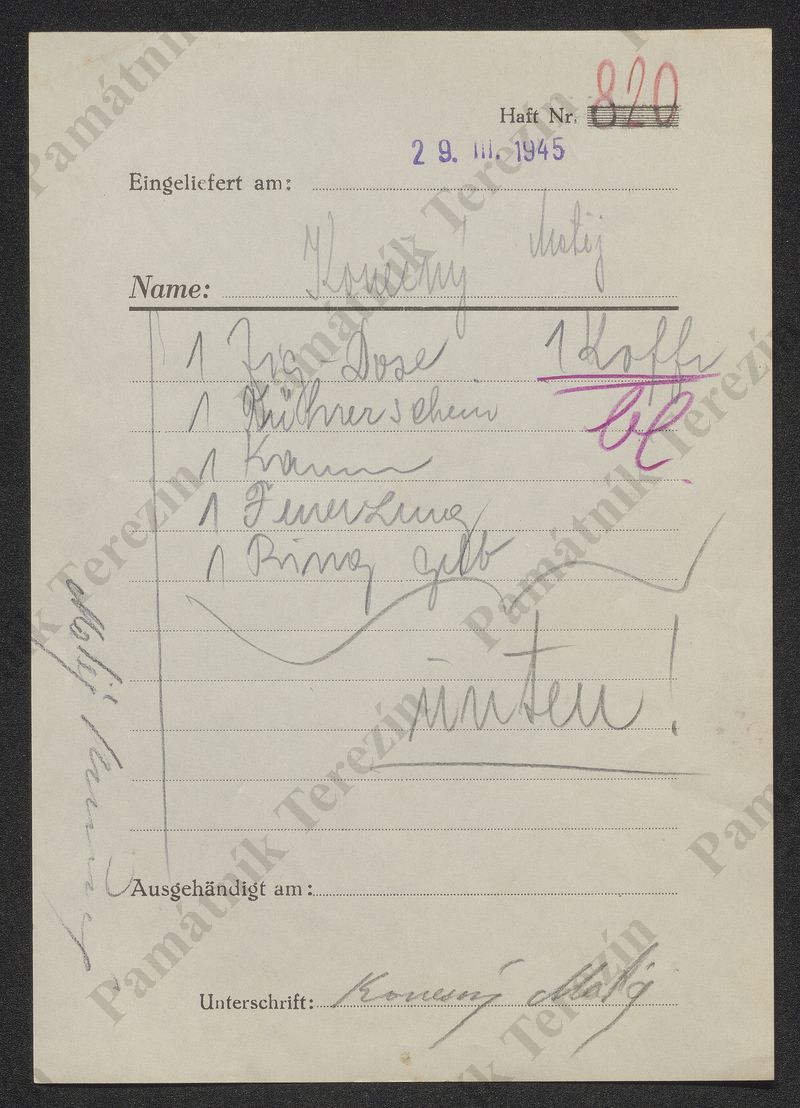 Haft Nr. 820
29. III. 1945
Eingeliefert am:
Name: Konečný Matěj
1 Zig-Dose 1 Koffr
1 Führerschein
1 Kamm
1 Feuerzeug
1 Ring gelb
unten!
Matěj
Ausgehändigt am:
Unterschrift: Konečný Matěj
Památník Terezín